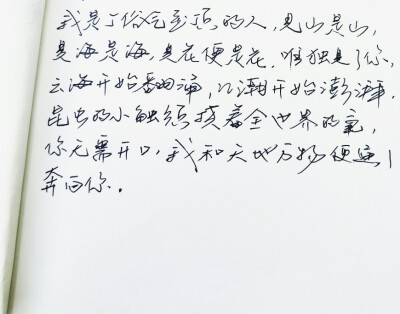 我是个俗气至顶的人，见山是山，
见海是海，见花便是花。唯独见了你，
云海开始翻涌，江潮开始澎湃，
昆虫的小触须挠着全世界的痒，
你无需开口，我和天地万物便通通
奔向你。